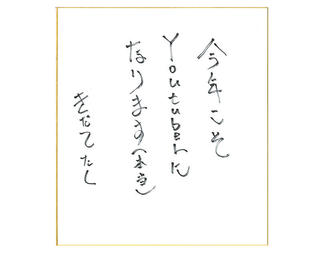 今年こそ
Youtuberに
なります(本当)
きだて たく